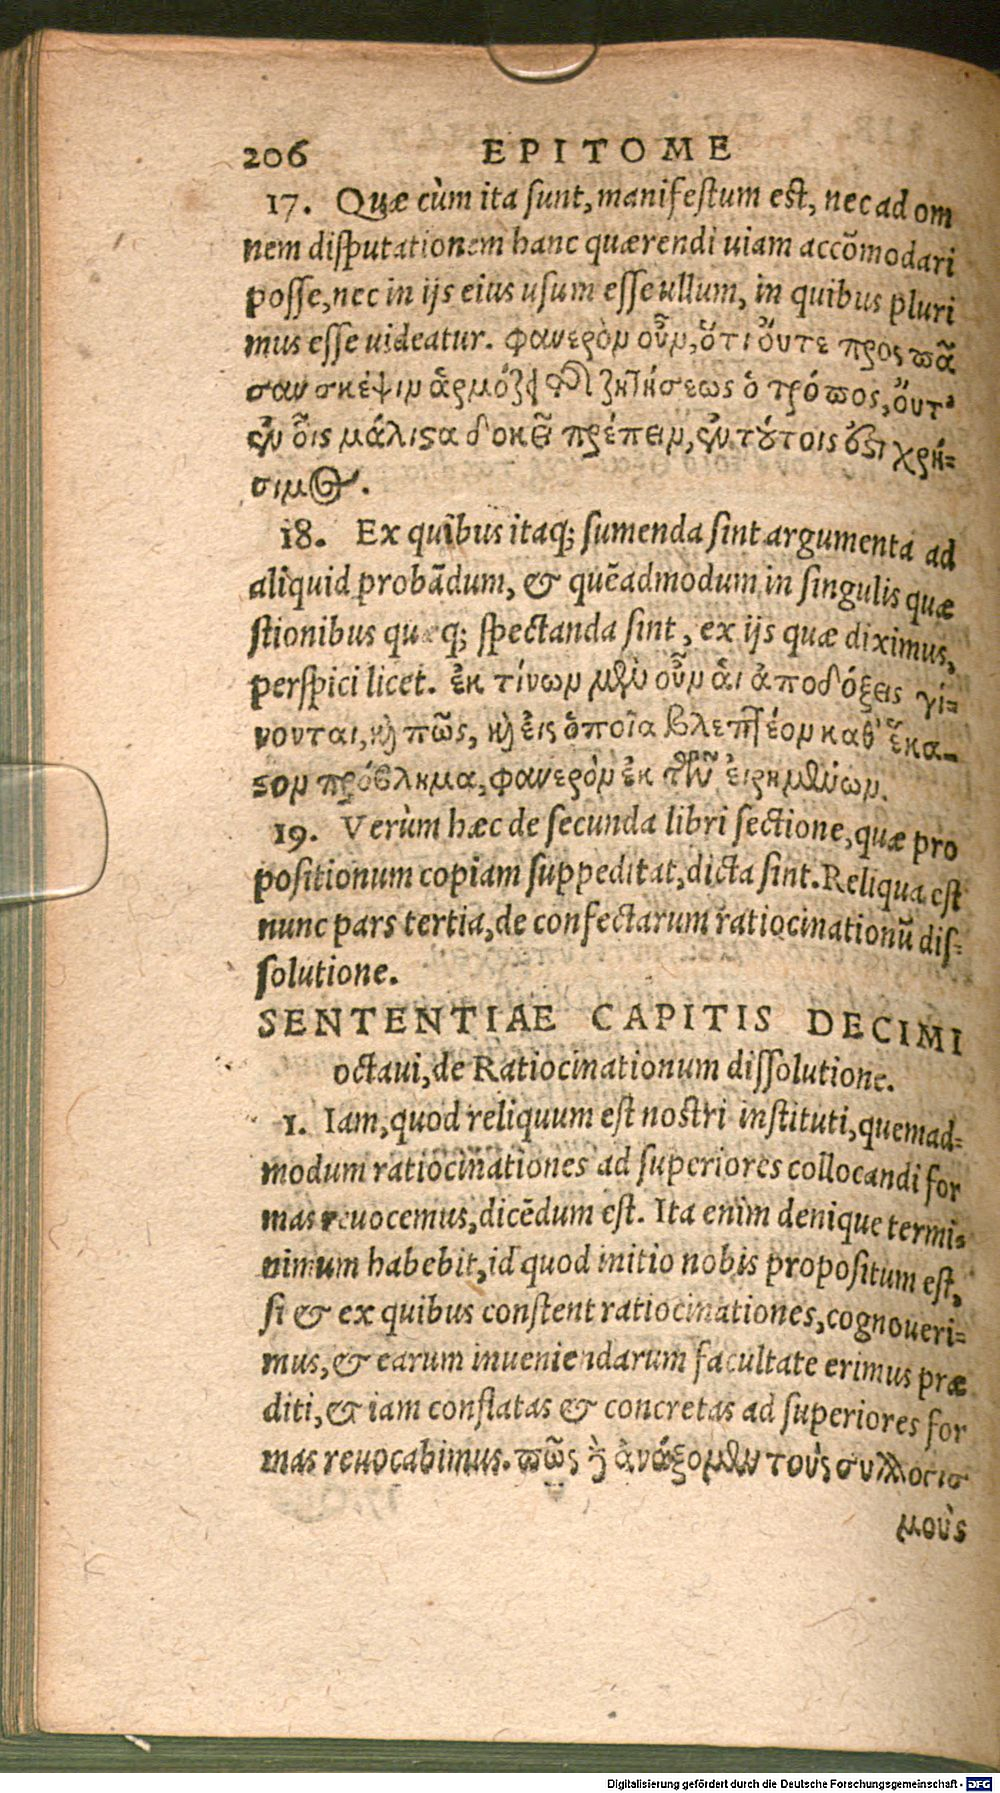 206 EPITOME
17. Quæ cùm ita sunt, manifestum est, nec ad om
nem disputationem hanc quærendi uiam accõmodari
posse, nec in ijs eius usum esse ullum, in quibus pluri
mus esse uideatur. φανερὸν οὖν, ὅτι οὔτε πρὸς πᾶ
σαν σκέψιν ἁρμόζει τῆς ζητήσεως ὁ τρόπος, οὔτ'
ἐν οἷς μάλιστα δοκεῖ πρέπειν, ἐν τούτοις ἐστὶ χρή-
σιμος.
18. Ex quibus itaq; sumenda sint argumenta ad
aliquid probãdum, & quẽadmodum in singulis quæ
stionibus quæq; spectanda sint, ex ijs quæ diximus,
perspici licet. ἐκ τίνων μὲν οὖν ἁι ἀποδόξεις γί-
νονται, καὶ πῶς, καὶ ἐις ὁποῖα βλεπτέον καθ' ἕκα-
στον πρόβλημα, φανερὸν ἐκ τῶν ἐιρημένων.
19. Verùm hæc de secunda libri sectione, quæ pro
positionum copiam suppeditat, dicta sint. Reliqua est
nunc pars tertia, de confectarum ratiocinationũ dis-
solutione.
SENTENTIAE CAPITIS DECIMI
octaui, de Ratiocinationum dissolutione.
1. Iam, quod reliquum est nostri instituti, quemad-
modum ratiocinationes ad superiores collocandi for
mas reuocemus, dicẽdum est. Ita enim denique termi-
nimum habebit, id quod initio nobis propositum est,
si & ex quibus constent ratiocinationes, cognoueri-
mus, & earum inueniendarum facultate erimus præ
diti, & iam conflatas & concretas ad superiores for
mas reuocabimus. πῶς δὲ ἀνάξομεν τοὺς συλλογισ
μοὺς
Digitalisierung gefördert durch die Deutsche Forschungsgemeinschaft - DFG